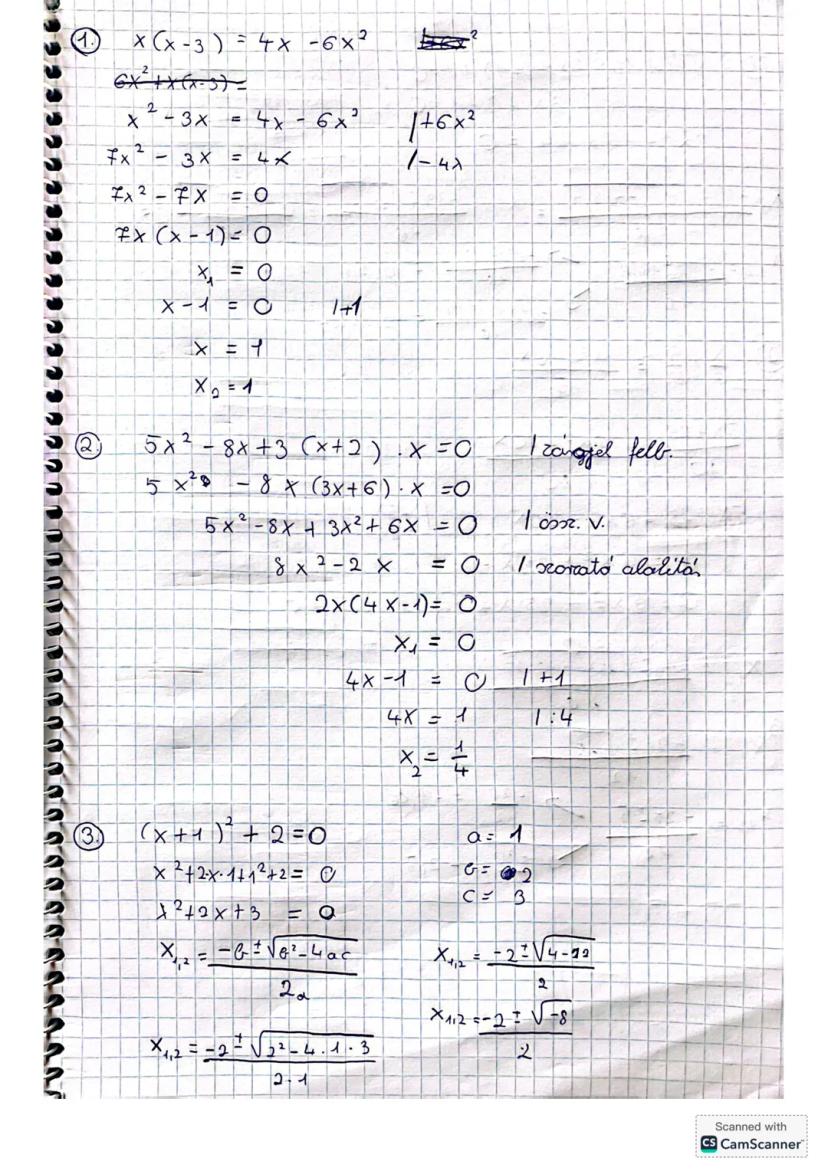 1. x(x-3) = 4x - 6x²
6x² + x(x-3) =
x² - 3x = 4x - 6x² /+6x²
7x² - 3x = 4x /-4x
7x² - 7x = 0
7x(x-1) = 0
x₁ = 0
x-1 = 0 /+1
x = 1
x₂ = 1
2. 5x² - 8x + 3(x+2)·x = 0 / zárójel felb.
5x² - 8x (3x+6)·x = 0
5x² - 8x + 3x² + 6x = 0 / össz. v.
8x² - 2x = 0 / szorzató alalítás
2x(4x-1) = 0
x₁ = 0
4x-1 = 0 /+1
4x = 1 /:4
x₂ = 1/4
3. (x+1)² + 2 = 0 a = 1
x² + 2x·1 + 1² + 2 = 0 b = 2
c = 3
x² + 2x + 3 = 0
x₁,₂ = (-b ± √(b² - 4ac))/2a x₁,₂ = (-2 ± √(4-12))/2
x₁,₂ = (-2 ± √(2² - 4·1·3))/2·1 x₁,₂ = (-2 ± √-8)/2
Scanned with
CS CamScanner